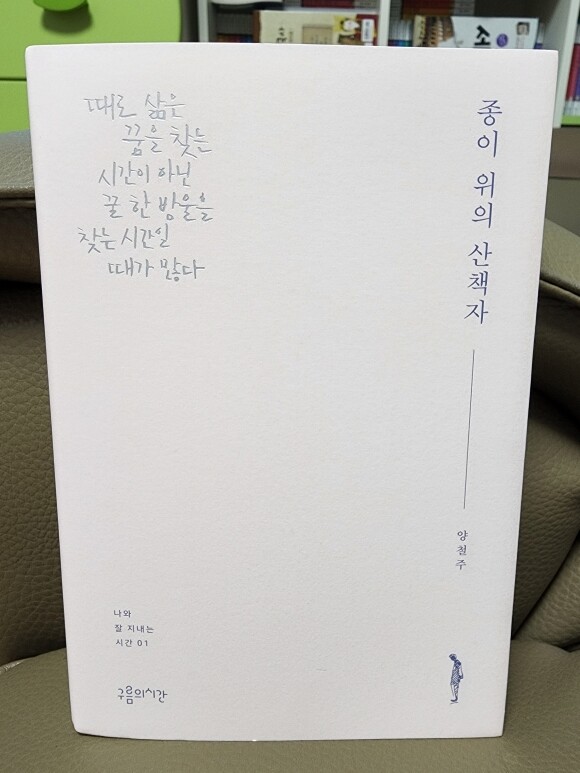 때로 삶은
꿈을 찾는
시간이 아닌
꿀 한 방울을
찾는 시간일
때가 많다
종이 위의 산책자
양철주
나와
잘 지내는
시간 01
구름의시간